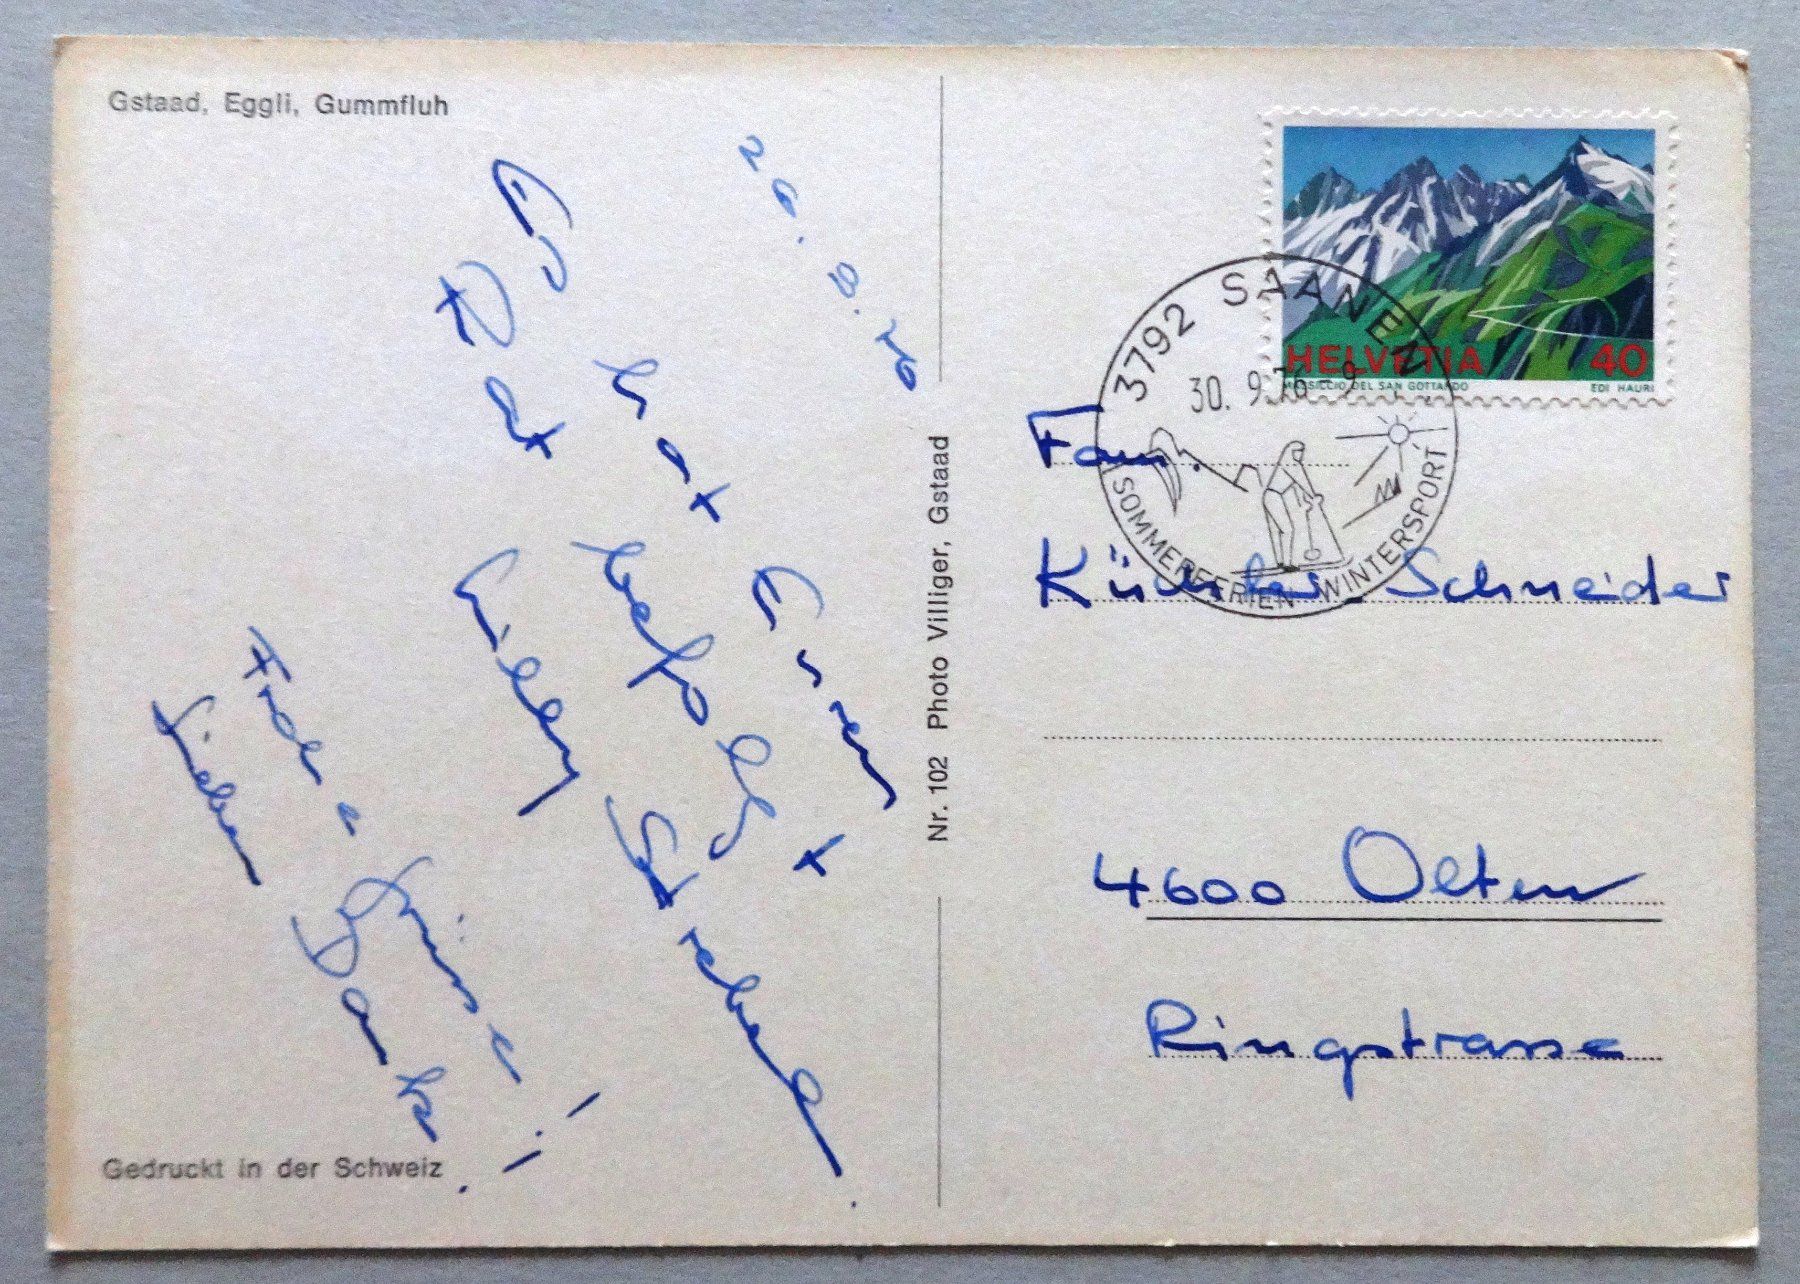 Gstaad, Eggli, Gummfluh
Es hat Euren
Rat befolgt
Willy Strebel.
Frohe Grüsse!
Lieben Dank!
Gedruckt in der Schweiz
Nr. 102 Photo Villiger, Gstaad
HELVETIA 40
MASSICCIO DEL SAN GOTTARDO EDI HAURI
3792 SAANEN
30. 9.76-9
SOMMERFERIEN WINTERSPORT
Fam.
Schneider
4600 Olten
Ringstrasse